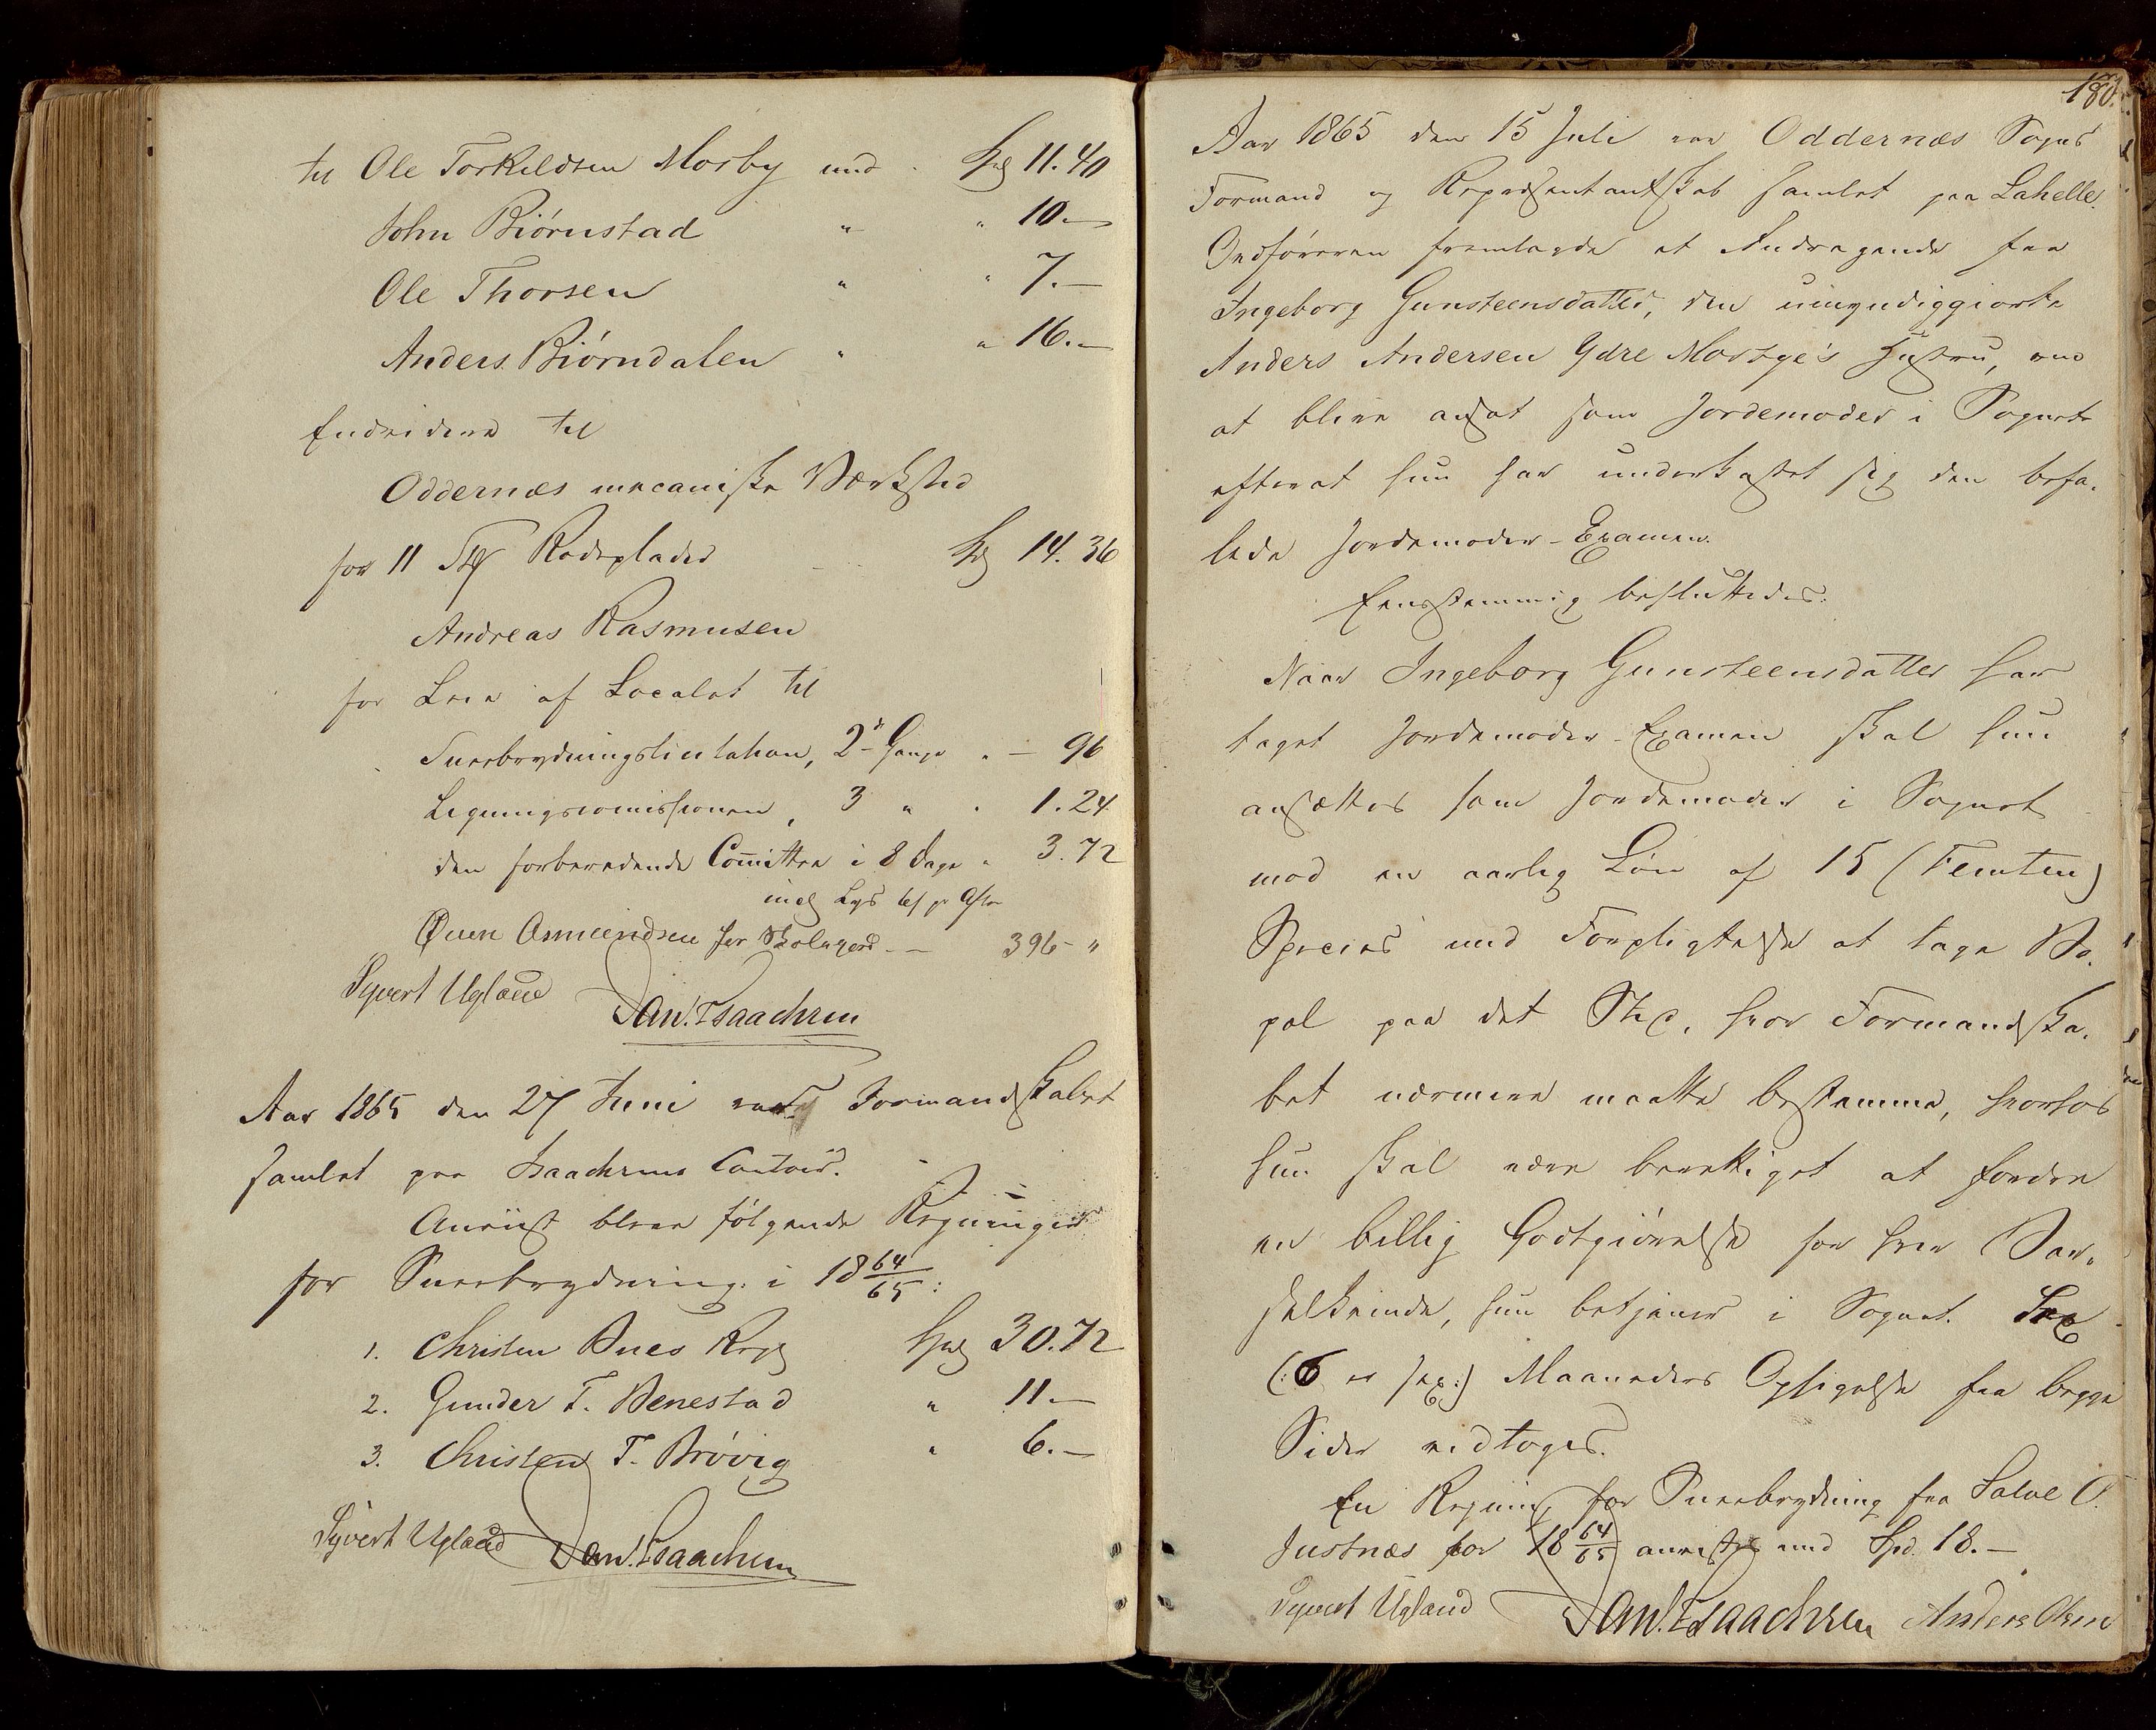 til Ole Torkildsen Mosby med Spd 11.40
John Biørnstad " " 10.—
Ole Thorsen " " 7.—
Anders Biørndalen " " 16.—
Endvidere til
Oddernæs mecaniske Værksted
for 11 Rodeplader Spd 14.36
Andreas Rasmusen
for Leie af Localet til
Sneebrydningslicitation, 2de Gange " — 96
Ligningscomissionen, 3 " " 1.24
den forberedende Comitteen i 8 Dage " 3.72
Lys
Øuen Asmundsen for 396 "
Syvert Ugland Dan. Isaachsen
Aar 1865 den 27 Juni var Formandskabet
samlet paa Isaachsens Contoir.
Anviist bleve følgende Regninger
for Sneebrydning i 18 64/65:
1. Christen Bues Regn Spd 30.72
2. Gunder T. Benestad " 11.—
3. Christen T. Brøvig " 6.—
Syvert Ugland Dan. Isaachsen
180.
Aar 1865 den 15 Juli var Oddernæs Sogns
Formand og Repræsentantskab samlet paa Lahelle.
Ordføreren fremlagde et Andragende fra
Ingeborg Gunsteensdatter, den umyndiggiorte
Anders Andersen Ydre Mosbye's Hustru, om
at blive ansat som Jordemoder i Sognet
efterat hun har underkastet sig den befa-
lede Jordemoder-Examen.
Eensstemmig besluttedes:
Naar Ingeborg Gunsteensdatter har
taget Jordemoder-Examen skal hun
ansættes som Jordemoder i Sognet
mod en aarlig Løn af 15 (Femten)
Species med Forpligtelse at tage Bo-
pæl paa det Sted, hvor Formandska-
bet nærmere maatte bestemme, hvorhos
hun skal være berettiget at fordre
en billig Godtgiørelse for hver Bar-
selkvinde, hun betjener i Sognet. Sex
(:6 er sex:) Maaneders Opsigelse fra begge
Sider vedtoges.
En Regning for Sneebrydning fra Salve O.
Justnæs for 18 64/65 anvistes med Spd. 18.—
Syvert Ugland Dan. Isaachsen Anders Olsen